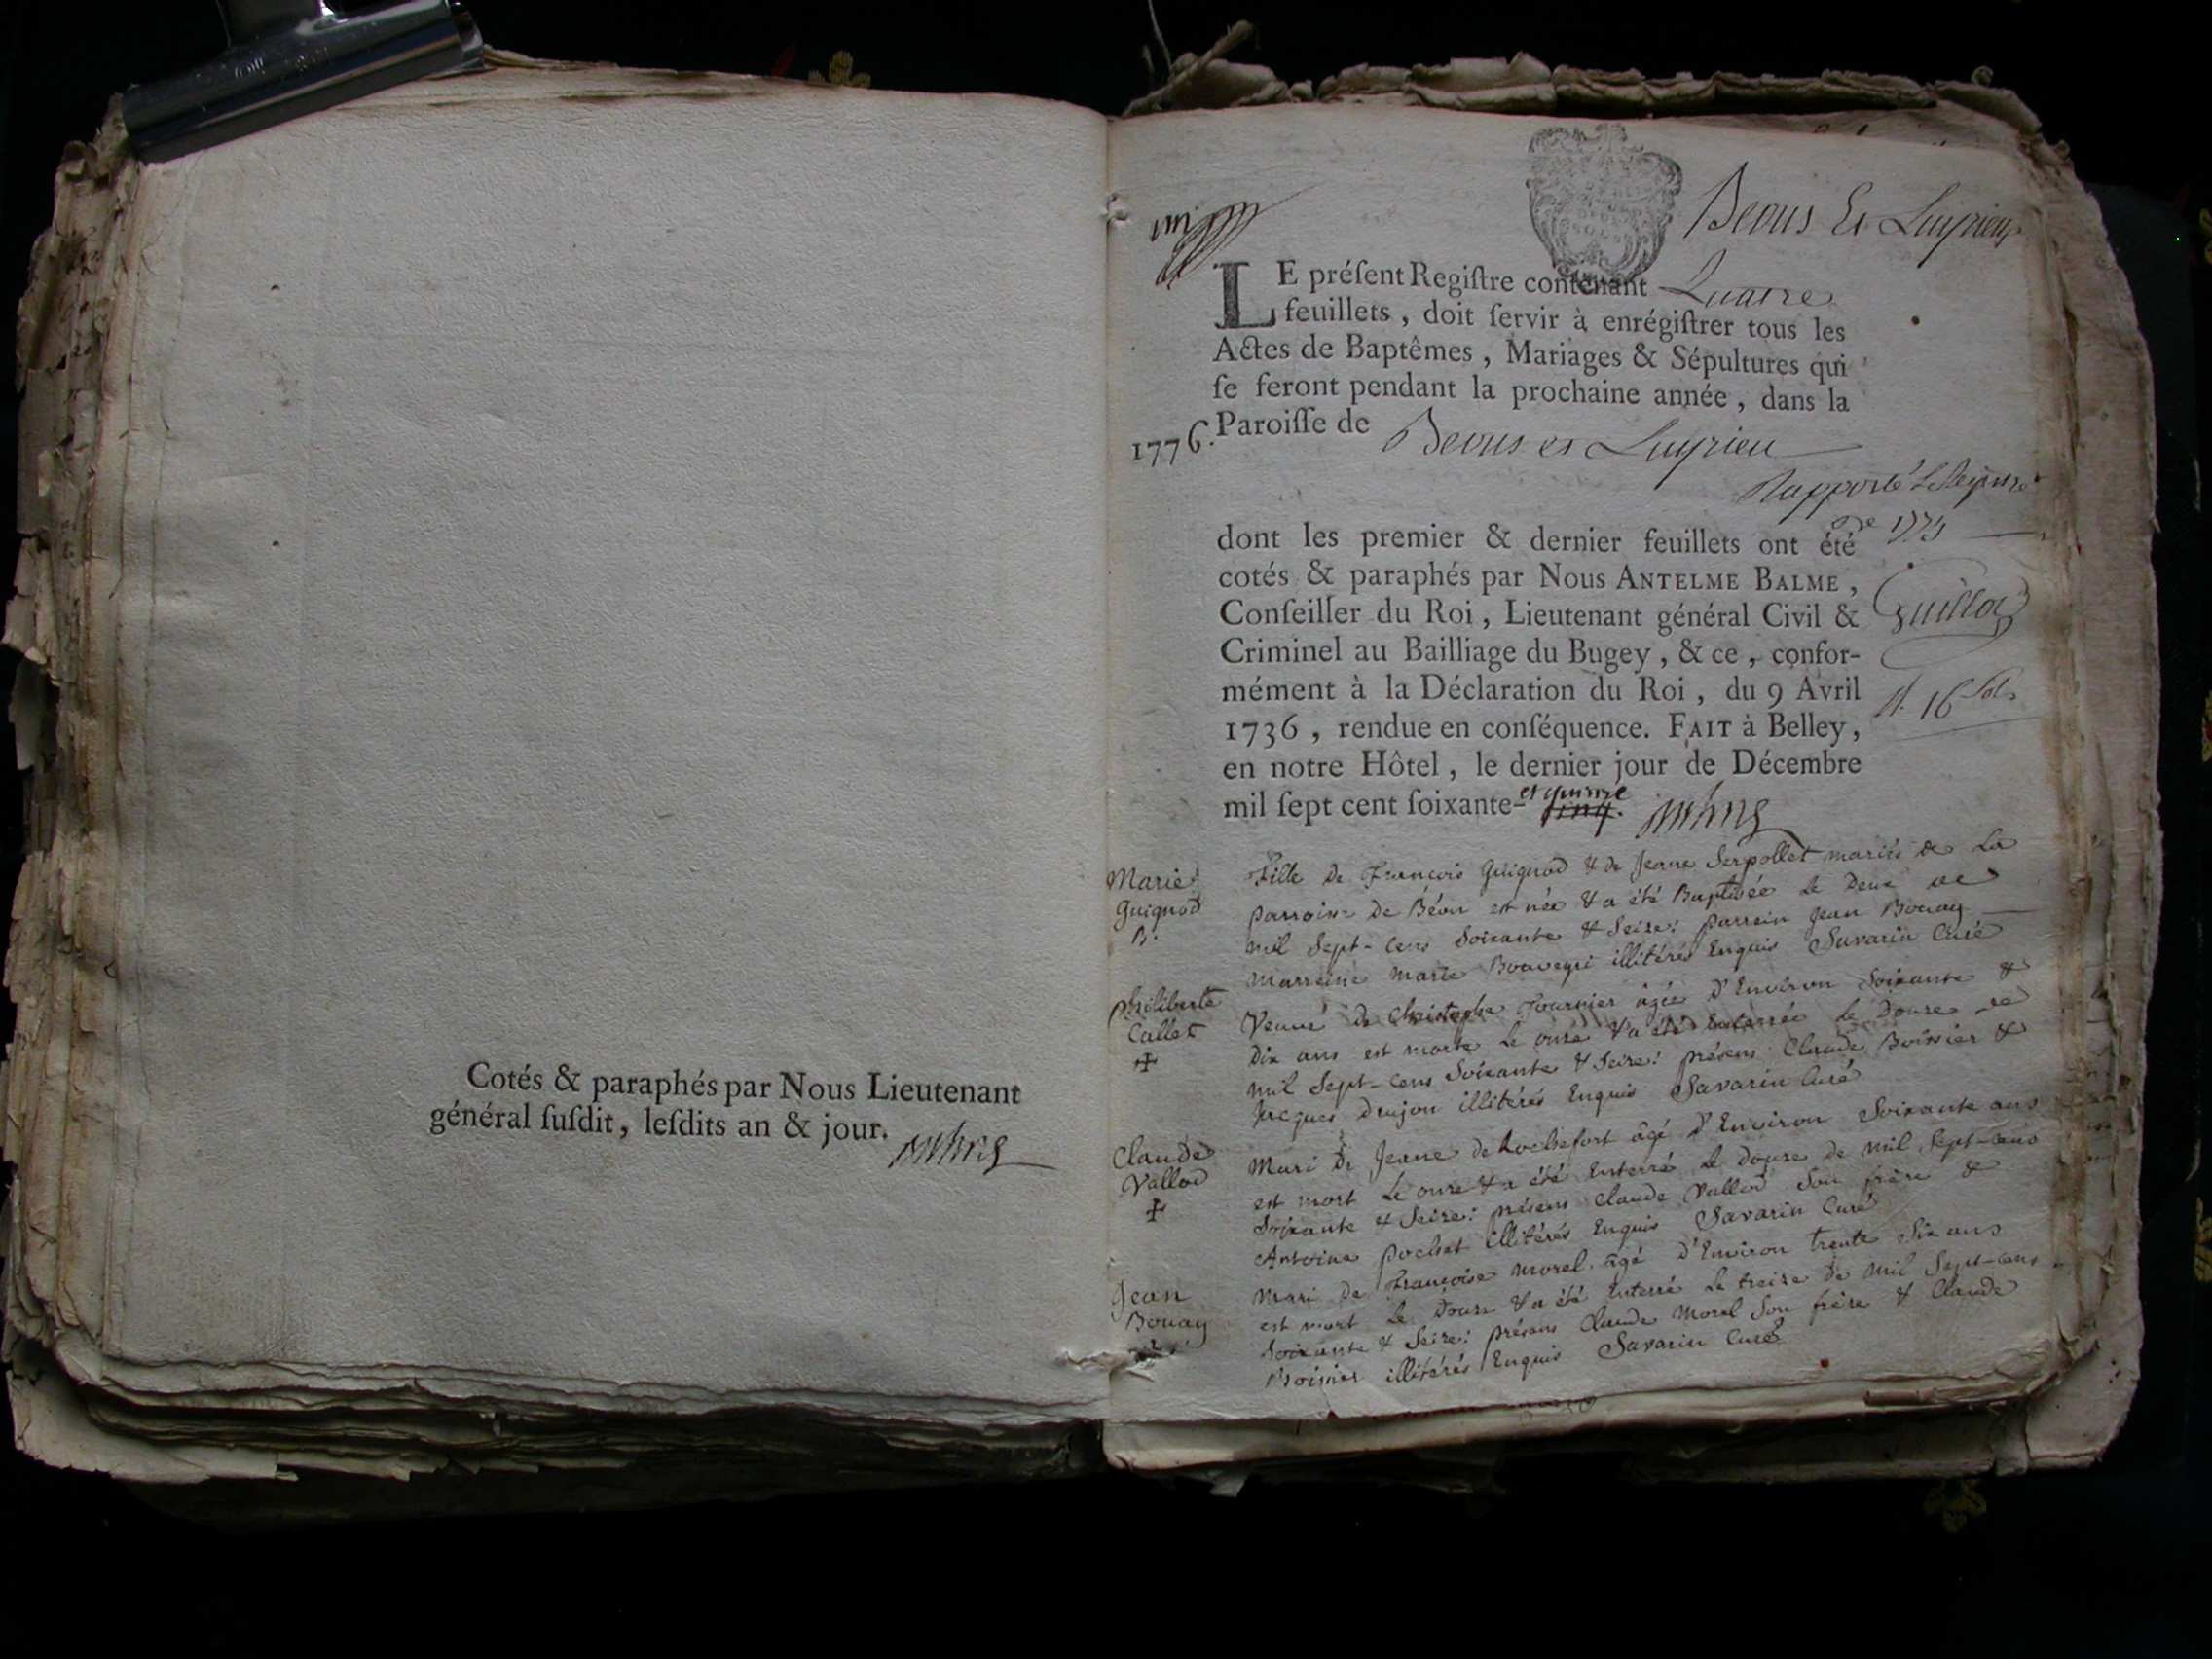 Cotés & paraphés par Nous Lieutenant
général ſuſdit, leſdits an & jour.
Beous Et Luyrieux
LE préſent Regiſtre contenant Quatre
feuillets, doit ſervir à enrégiſtrer tous les
Actes de Baptêmes, Mariages & Sépultures qui
ſe feront pendant la prochaine année, dans la
1776. Paroiſſe de Beous et Luyrieu
Rapporté le Regiſtre
de 1775
dont les premier & dernier feuillets ont été
cotés & paraphés par Nous ANTELME BALME,
Conſeiller du Roi, Lieutenant général Civil &
Guilloz
Criminel au Bailliage du Bugey, & ce, confor-
mément à la Déclaration du Roi, du 9 Avril
16 sols
1736, rendue en conſéquence. FAIT à Belley,
en notre Hôtel, le dernier jour de Décembre
mil ſept cent ſoixante- et quinze cinq.
Marie Guignod B.
Fille de François Guignod & de Jeanne Serpollet mariés de La
parroisse de Béon est née & a été Baptisée le Deux de
mil Sept-cens Soixante & Seize: parrein Jean Bouay
marreine marie Bouvegri illitérés Enquis Savarin Curé
philiberte Callet ✝
Veuve de Christophe Fournier âgée d'Environ Soixante &
Dix ans est morte Le onze & a été Enterrée le Douze de
mil Sept-cens Soixante & Seize: présens Claude Boissier &
Jacques Drujon illitérés Enquis Savarin Curé
Claude Vallod ✝
Mari De Jeanne de Rochefort âgé d'Environ Soixante ans
est mort Le onze & a été Enterré Le Douze de mil Sept-cens
Soixante & Seize: présens Claude Vallod Son frère &
Antoine pochet illitérés Enquis Savarin Curé
Jean Bouay
Mari de Françoise morel âgé d'Environ trente Six ans
est mort Le Douze & a été Enterré Le treize De mil Sept-cens
Soixante & Seize: présens Claude Morel Son frère & Claude
Boissier illitérés Enquis Savarin Curé